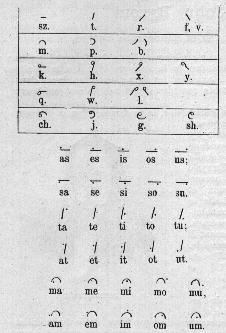 sz. t. r. f, v.
m. p. b.
k. h. x. y.
q. w. l.
ch. j. g. sh.
as es is os us;
sa se si so su.
ta te ti to tu;
at et it ot ut.
ma me mi mo mu,
am em im om um.